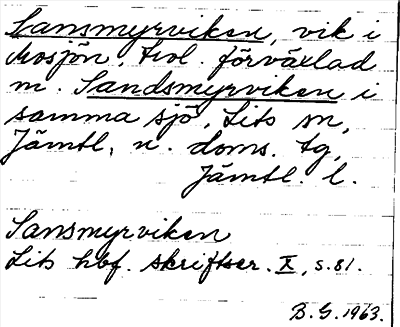 Sansmyrviken, vik i
Mosjön, trol. förväxlad
m. Sandsmyrviken i
samma sjö, Lits sn,
Jämtl. n. doms. tg,
Jämtl. l.
Sansmyrviken
Lits hbf. skriftser. X, s. 81.
B. G. 1963.